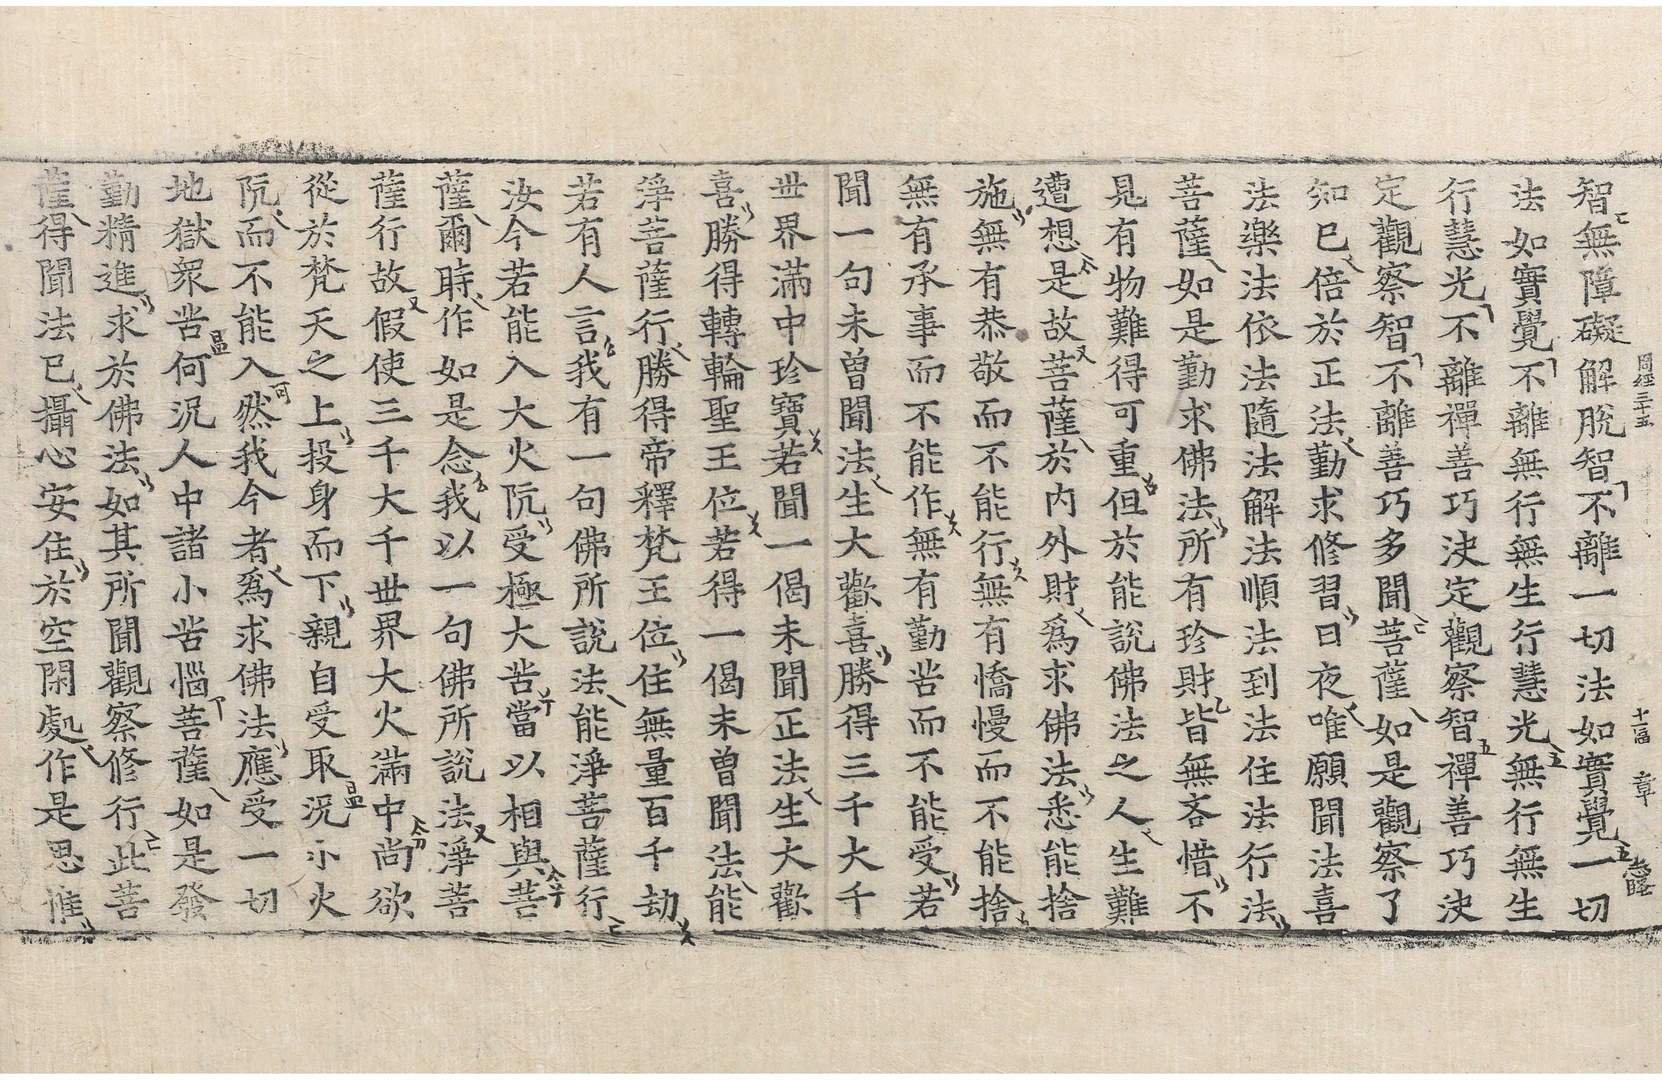 周經三十五 十二 章
智無障礙解脫智不離一切法如實覺一切
法如實覺不離無行無生行慧光無行無生
行慧光不離禪善巧決定觀察智禪善巧決
定觀察智不離善巧多聞菩薩如是觀察了
知已倍於正法勤求修習日夜唯願聞法喜
法樂法依法隨法解法順法到法住法行法
菩薩如是勤求佛法所有珍財皆無吝惜不
見有物難得可重但於能說佛法之人生難
遭想是故菩薩於內外財為求佛法悉能捨
施無有恭敬而不能行無有憍慢而不能捨
無有承事而不能作無有勤苦而不能受若
聞一句未曾聞法生大歡喜勝得三千大千
世界滿中珍寶若聞一偈未聞正法生大歡
喜勝得轉輪聖王位若得一偈未曾聞法能
淨菩薩行勝得帝釋梵王位住無量百千劫
若有人言我有一句佛所說法能淨菩薩行
汝今若能入大火阬受極大苦當以相與菩
薩爾時作如是念我以一句佛所說法淨菩
薩行故假使三千大千世界大火滿中尚欲
從於梵天之上投身而下親自受取況小火
阬而不能入然我今者為求佛法應受一切
地獄眾苦何況人中諸小苦惱菩薩如是發
勤精進求於佛法如其所聞觀察修行此菩
薩得聞法已攝心安住於空閑處作是思惟